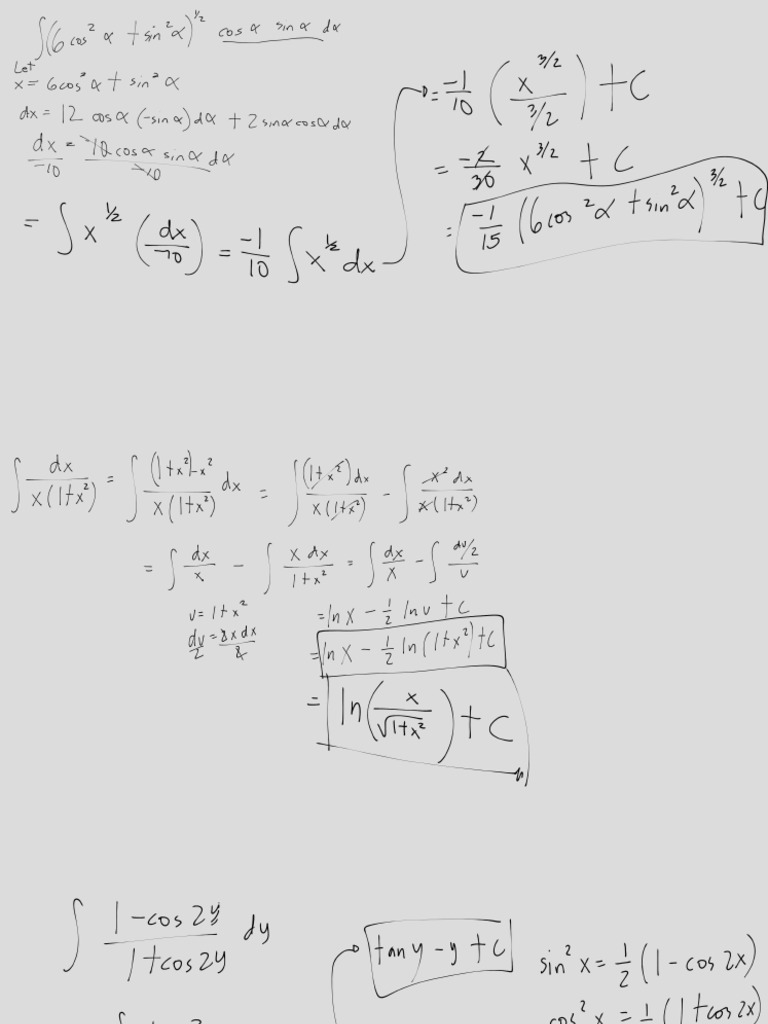 ∫(6cos²α + sin²α)^½ cosα sinα dα
Let
x = 6cos²α + sin²α
dx = 12 cosα (-sinα)dα + 2sinαcosαdα
dx/-10 = -10cosα sinα dα/-10
= ∫x^½ (dx/-10) = -1/10 ∫x^½ dx
= -1/10 (x^3/2 / 3/2) + C
= -2/30 x^3/2 + C
= -1/15 (6cos²α + sin²α)^3/2 + C
∫dx/x(1+x²) = ∫(1+x²)-x²/x(1+x²) dx = ∫(1+x²)dx/x(1+x²) - ∫x²dx/x(1+x²)
= ∫dx/x - ∫x dx/1+x² = ∫dx/x - ∫dv/2/v
v = 1+x²
dv/2 = 2x dx/2
= ln x - ½ ln v + C
= ln x - ½ ln(1+x²) + C
= ln(x/√1+x²) + C
∫ 1-cos2y/1+cos2y dy
tan y - y + C
sin²x = ½(1-cos 2x)
cos²x = ½(1+cos 2x)